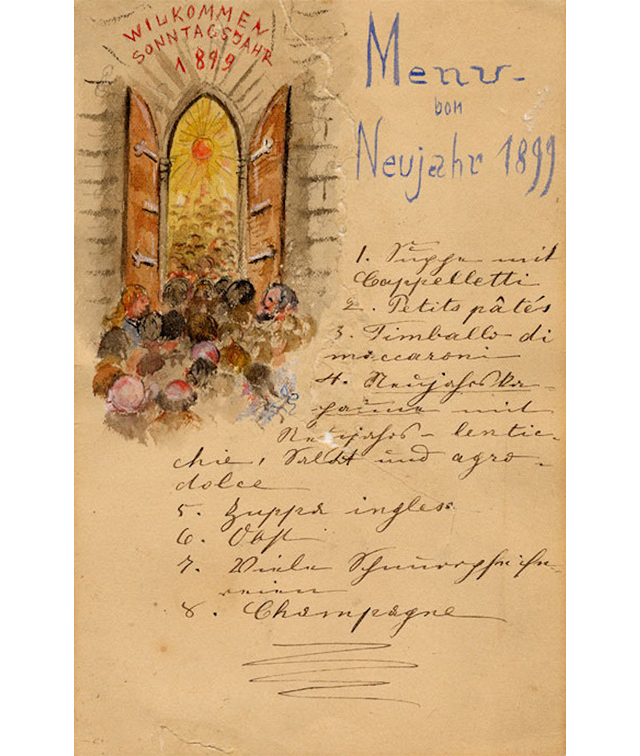 WILKOMMEN
SONNTAGSJAHR
1899
Menu
von
Neujahr 1899
1. Suppe mit
Cappelletti
2. Petits pâtés
3. Timballo di
maccaroni
4. Neujahrska-
paune mit
Neujahrs-lentic-
chie, Salat und agro-
dolce
5. Zuppa inglese
6. Obst
7. Viele Schnurrpfeife-
reien
8. Champagne